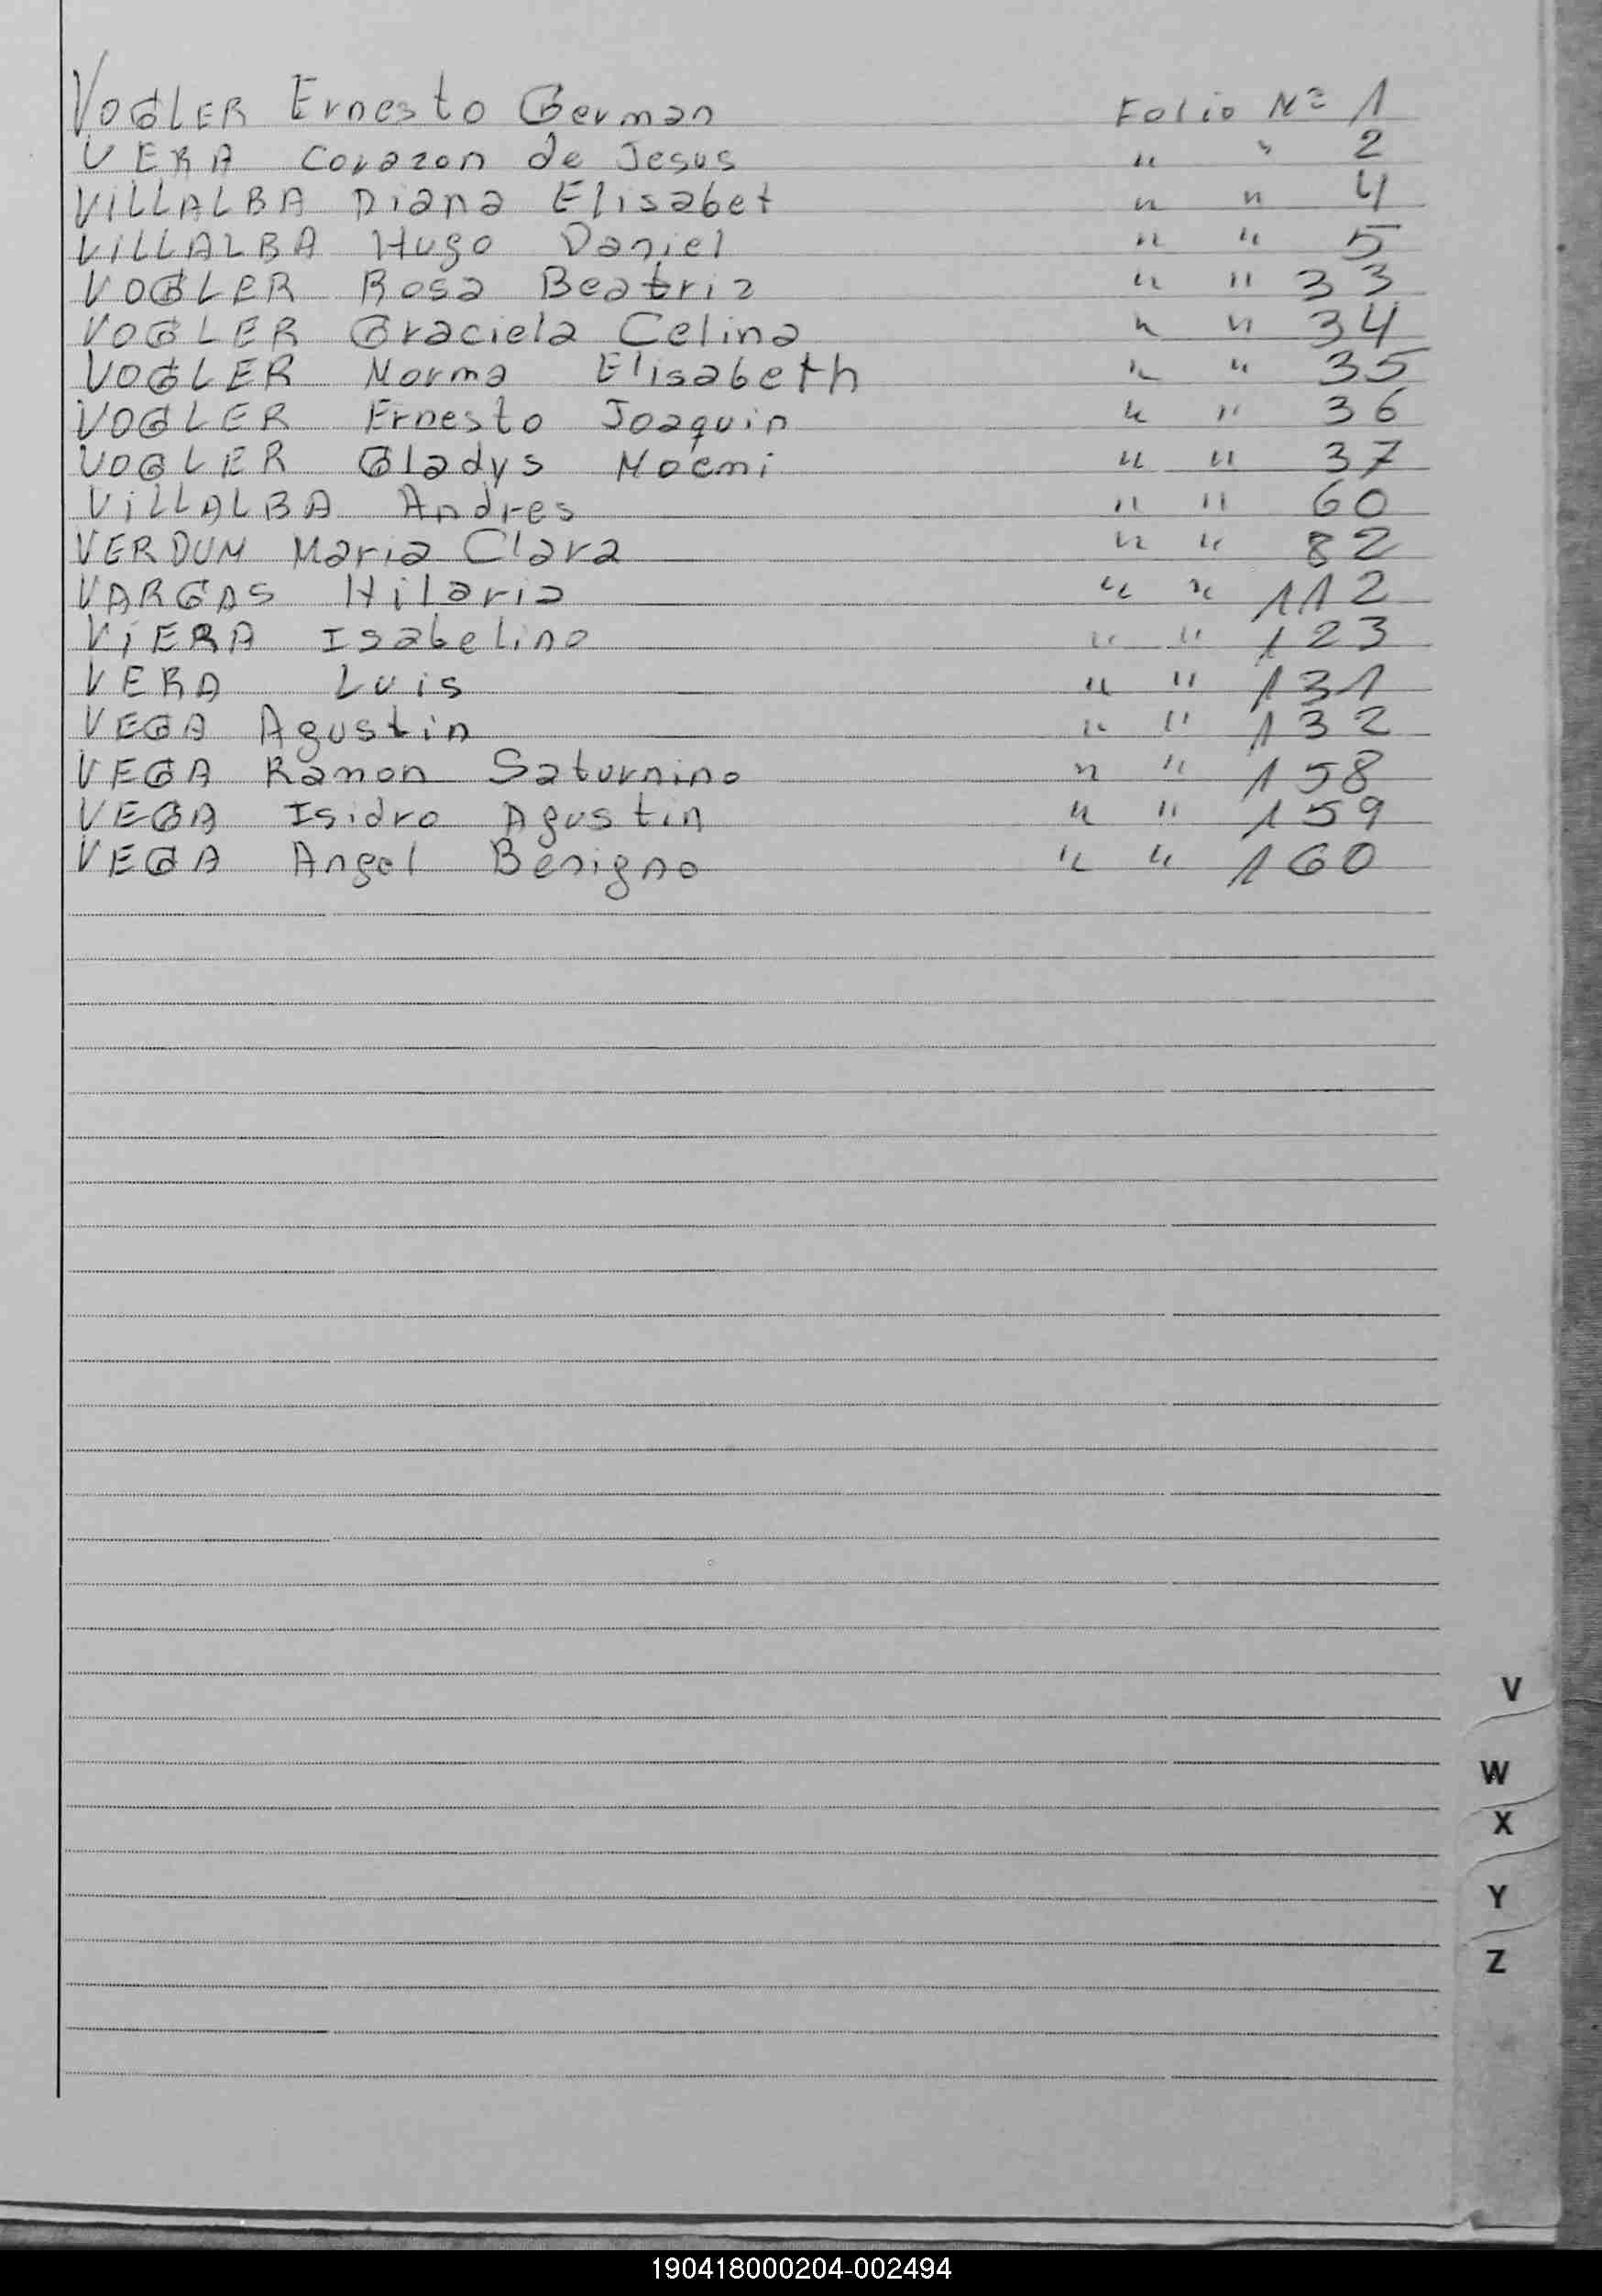 VOGLER Ernesto German Folio Nº 1
VERA Corazon de Jesus " " 2
VILLALBA Diana Elisabet " " 4
VILLALBA Hugo Daniel " " 5
VOGLER Rosa Beatriz " " 33
VOGLER Graciela Celina " " 34
VOGLER Norma Elisabeth " " 35
VOGLER Ernesto Joaquin " " 36
VOGLER Gladys Noemi " " 37
VILLALBA Andres " " 60
VERDUN Maria Clara " " 82
VARGAS Hilaria " " 112
VIERA Isabelino " " 123
VERA Luis " " 131
VEGA Agustin " " 132
VEGA Ramon Saturnino " " 158
VEGA Isidro Agustin " " 159
VEGA Angel Benigno " " 160
V
W
X
Y
Z
190418000204-002494